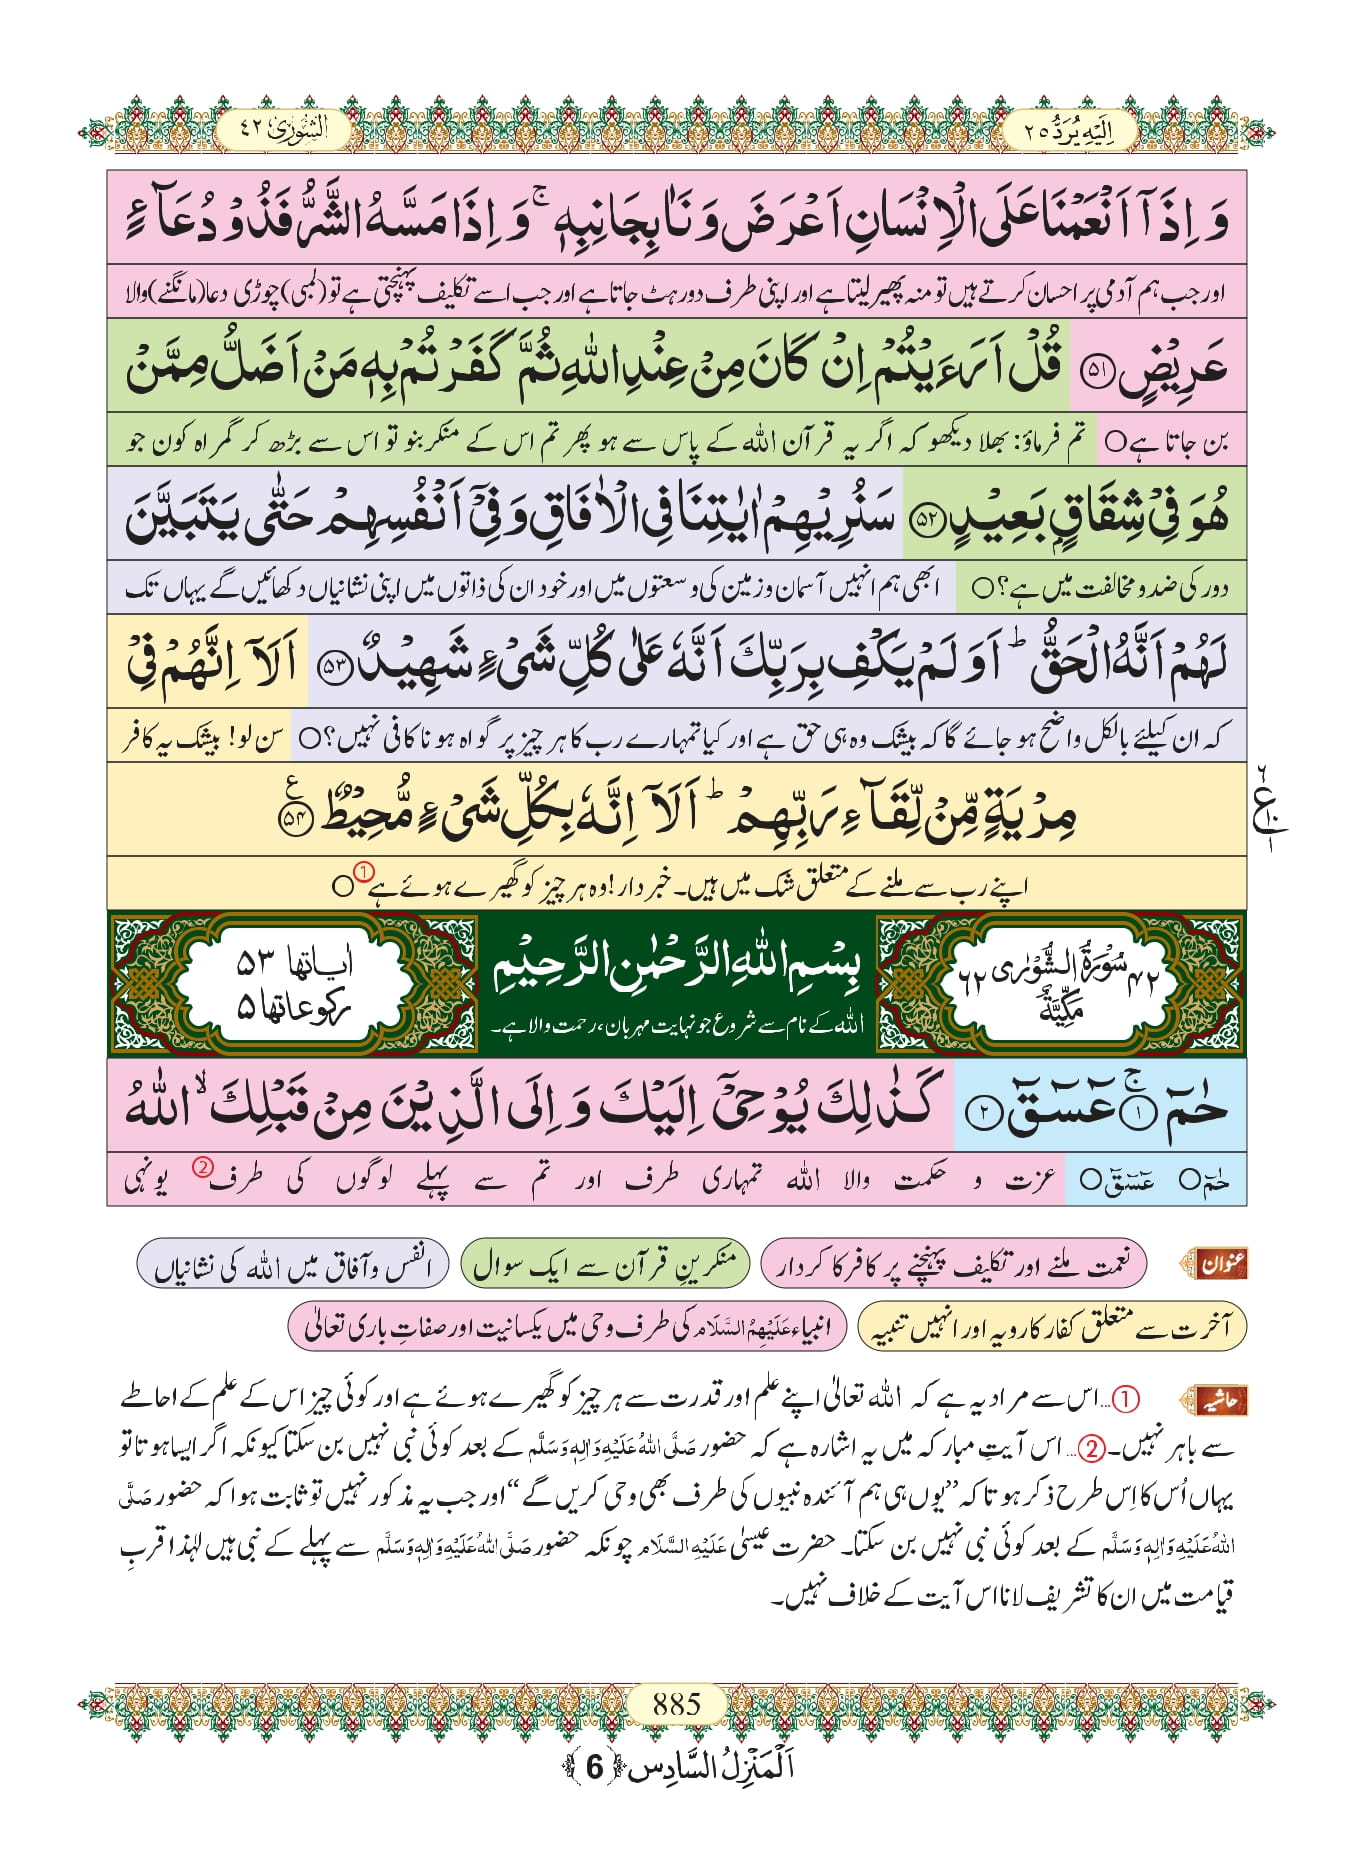 اِلَیْهِ یُرَدُّ ٢٥
الشُّوْرٰی ٤٢
وَ اِذَاۤ اَنْعَمْنَا عَلَى الْاِنْسَانِ اَعْرَضَ وَ نَاٰ بِجَانِبِهٖۚ وَ اِذَا مَسَّهُ الشَّرُّ فَذُوْ دُعَآءٍ
اور جب ہم آدمی پر احسان کرتے ہیں تو منہ پھیر لیتا ہے اور اپنی طرف دور ہٹ جاتا ہے اور جب اسے تکلیف پہنچتی ہے تو (لمبی) چوڑی دعا (مانگنے) والا
عَرِیْضٍ ﴿۵۱﴾ قُلْ اَرَءَیْتُمْ اِنْ كَانَ مِنْ عِنْدِ اللّٰهِ ثُمَّ كَفَرْتُمْ بِهٖ مَنْ اَضَلُّ مِمَّنْ
بن جاتا ہے ○ تم فرماؤ: بھلا دیکھو کہ اگر یہ قرآن اللہ کے پاس سے ہو پھر تم اس کے منکر بنو تو اس سے بڑھ کر گمراہ کون جو
هُوَ فِیْ شِقَاقٍۭ بَعِیْدٍ ﴿۵۲﴾ سَنُرِیْهِمْ اٰیٰتِنَا فِی الْاٰفَاقِ وَ فِیْۤ اَنْفُسِهِمْ حَتّٰى یَتَبَیَّنَ
دور کی ضد و مخالفت میں ہے؟ ○ ابھی ہم انہیں آسمان و زمین کی وسعتوں میں اور خود ان کی ذاتوں میں اپنی نشانیاں دکھائیں گے یہاں تک
لَهُمْ اَنَّهُ الْحَقُّؕ اَوَ لَمْ یَكْفِ بِرَبِّكَ اَنَّهٗ عَلٰى كُلِّ شَیْءٍ شَهِیْدٌ ﴿۵۳﴾ اَلَاۤ اِنَّهُمْ فِیْ
کہ ان کیلئے بالکل واضح ہو جائے گا کہ بیشک وہ ہی حق ہے اور کیا تمہارے رب کا ہر چیز پر گواہ ہونا کافی نہیں؟ ○ سن لو! بیشک یہ کافر
مِرْیَةٍ مِّنْ لِّقَآءِ رَبِّهِمْؕ اَلَاۤ اِنَّهٗ بِكُلِّ شَیْءٍ مُّحِیْطٌ ﴿۵۴﴾ ع
٦ ع ١٠ ١
اپنے رب سے ملنے کے متعلق شک میں ہیں۔ خبردار! وہ ہر چیز کو گھیرے ہوئے ہے ① ○
٤٢ سُوْرَةُ الشُّوْرٰى مَكِّیَّةٌ ٦٢
بِسْمِ اللّٰهِ الرَّحْمٰنِ الرَّحِیْمِ
اللہ کے نام سے شروع جو نہایت مہربان، رحمت والا ہے۔
اٰیاتها ۵۳
رکوعاتها ۵
حٰمٓۚ ﴿۱﴾ عٓسٓقٓ ﴿۲﴾ كَذٰلِكَ یُوْحِیْۤ اِلَیْكَ وَ اِلَى الَّذِیْنَ مِنْ قَبْلِكَۙ اللّٰهُ
حٰمٓ ○ عٓسٓقٓ ○ عزت و حکمت والا اللہ تمہاری طرف اور تم سے پہلے لوگوں کی طرف ② یونہی
عنوان
نعمت ملنے اور تکلیف پہنچنے پر کافر کا کردار
منکرینِ قرآن سے ایک سوال
انفس و آفاق میں اللہ کی نشانیاں
آخرت سے متعلق کفار کا رویہ اور انہیں تنبیہ
انبیاء عَلَیْهِمُ السَّلَام کی طرف وحی میں یکسانیت اور صفاتِ باری تعالیٰ
حاشیہ
①... اس سے مراد یہ ہے کہ اللہ تعالیٰ اپنے علم اور قدرت سے ہر چیز کو گھیرے ہوئے ہے اور کوئی چیز اس کے علم کے احاطے
سے باہر نہیں۔ ②... اس آیتِ مبارکہ میں یہ اشارہ ہے کہ حضور صَلَّی اللہُ عَلَیْهِ وَاٰلِهٖ وَسَلَّم کے بعد کوئی نبی نہیں بن سکتا کیونکہ اگر ایسا ہوتا تو
یہاں اُس کا اِس طرح ذکر ہوتا کہ ’’یوں ہی ہم آئندہ نبیوں کی طرف بھی وحی کریں گے‘‘ اور جب یہ مذکور نہیں تو ثابت ہوا کہ حضور صَلَّی
اللہُ عَلَیْهِ وَاٰلِهٖ وَسَلَّم کے بعد کوئی نبی نہیں بن سکتا۔ حضرت عیسیٰ عَلَیْهِ السَّلَام چونکہ حضور صَلَّی اللہُ عَلَیْهِ وَاٰلِهٖ وَسَلَّم سے پہلے کے نبی ہیں لہٰذا قربِ
قیامت میں ان کا تشریف لانا اس آیت کے خلاف نہیں۔
885
اَلْمَنْزِلُ السَّادِس ﴿6﴾